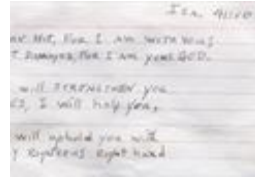 Isa. 41:10
Not, For I am with you;
Dismayed, For I am your God.
will strengthen you
I will help you,
will uphold you with
Righteous Right hand